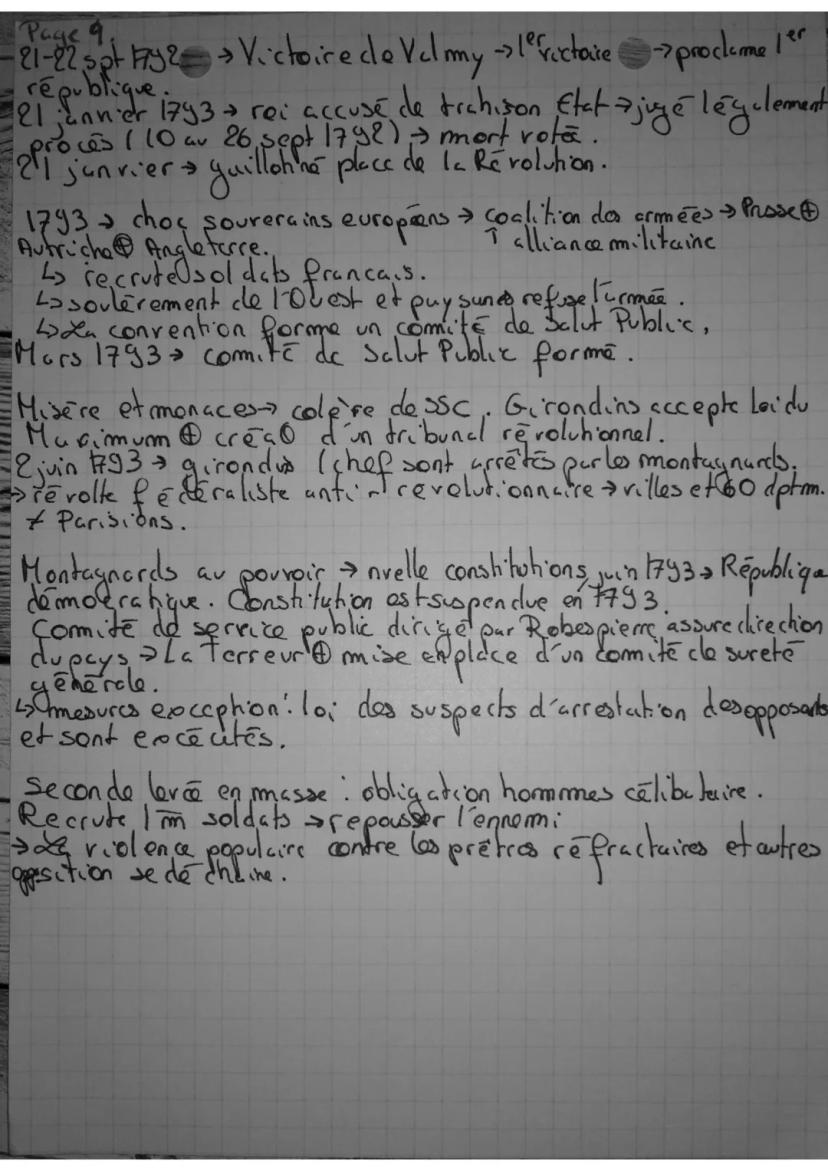 Page 9.
21-22 spt 1792 → Victoire de Valmy → 1er victoire → proclame 1er
république.
21 janvier 1793 → roi accusé de trahison Etat → jugé légalement
procès (10 au 26 sept 1792) → mort votée.
21 janvier → guillotiné place de la Révolution.
1793 → choc souverains européens → coalition des armées → Prusse ⊕
Autriche ⊕ Angleterre. ↑ alliance militaire
↳ recrute soldats francais.
↳ soulèrement de l'Ouest et paysans refuse l'armée.
↳ La convention forme un comité de Salut Public,
Mars 1793 → comité de Salut Public formé.
Misère et menaces → colère des SSC. Girondins accepte Loi du
Maximum ⊕ créa⁰ d'un tribunal révolutionnel.
2 juin 1793 → girondins (chef sont arrêtés par les montagnards.
→ révolte fédéraliste anti-revolutionnaire → villes et 60 dptm.
≠ Parisions.
Montagnards au pouvoir → nvelle constitutions, juin 1793 → République
démocratique. Constitution est suspendue en 1793.
Comité de service public dirigé par Robespierre, assure direction
du pays → La Terreur ⊕ mise en place d'un comité de sureté
générale.
↳ mesures exception : loi des suspects d'arrestation des opposants
et sont exécutés.
Seconde levée en masse : obligation hommes célibataire.
Recrute 1 m soldats → repousser l'ennemi
→ La violence populaire contre les prêtres réfractaires et autres
opposition se déchaine.